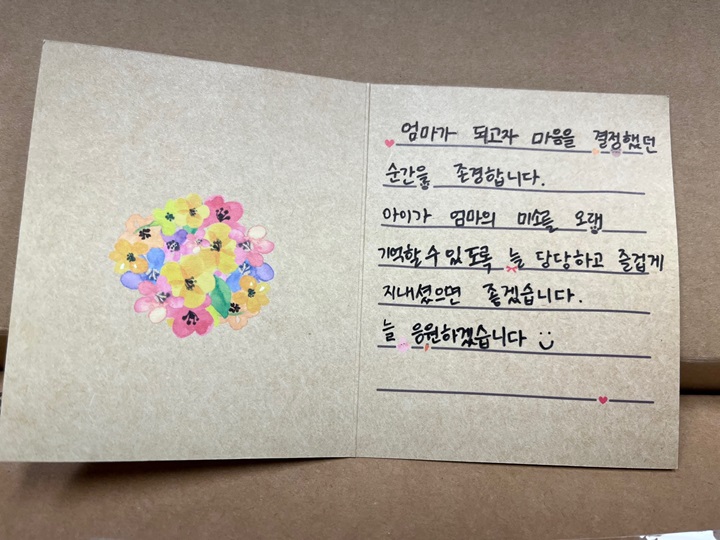 엄마가 되고자 마음을 결정했던
순간을 존경합니다.
아이가 엄마의 미소를 오랫
기억할 수 있도록 늘 당당하고 즐겁게
지내셨으면 좋겠습니다.
늘 응원하겠습니다 :)